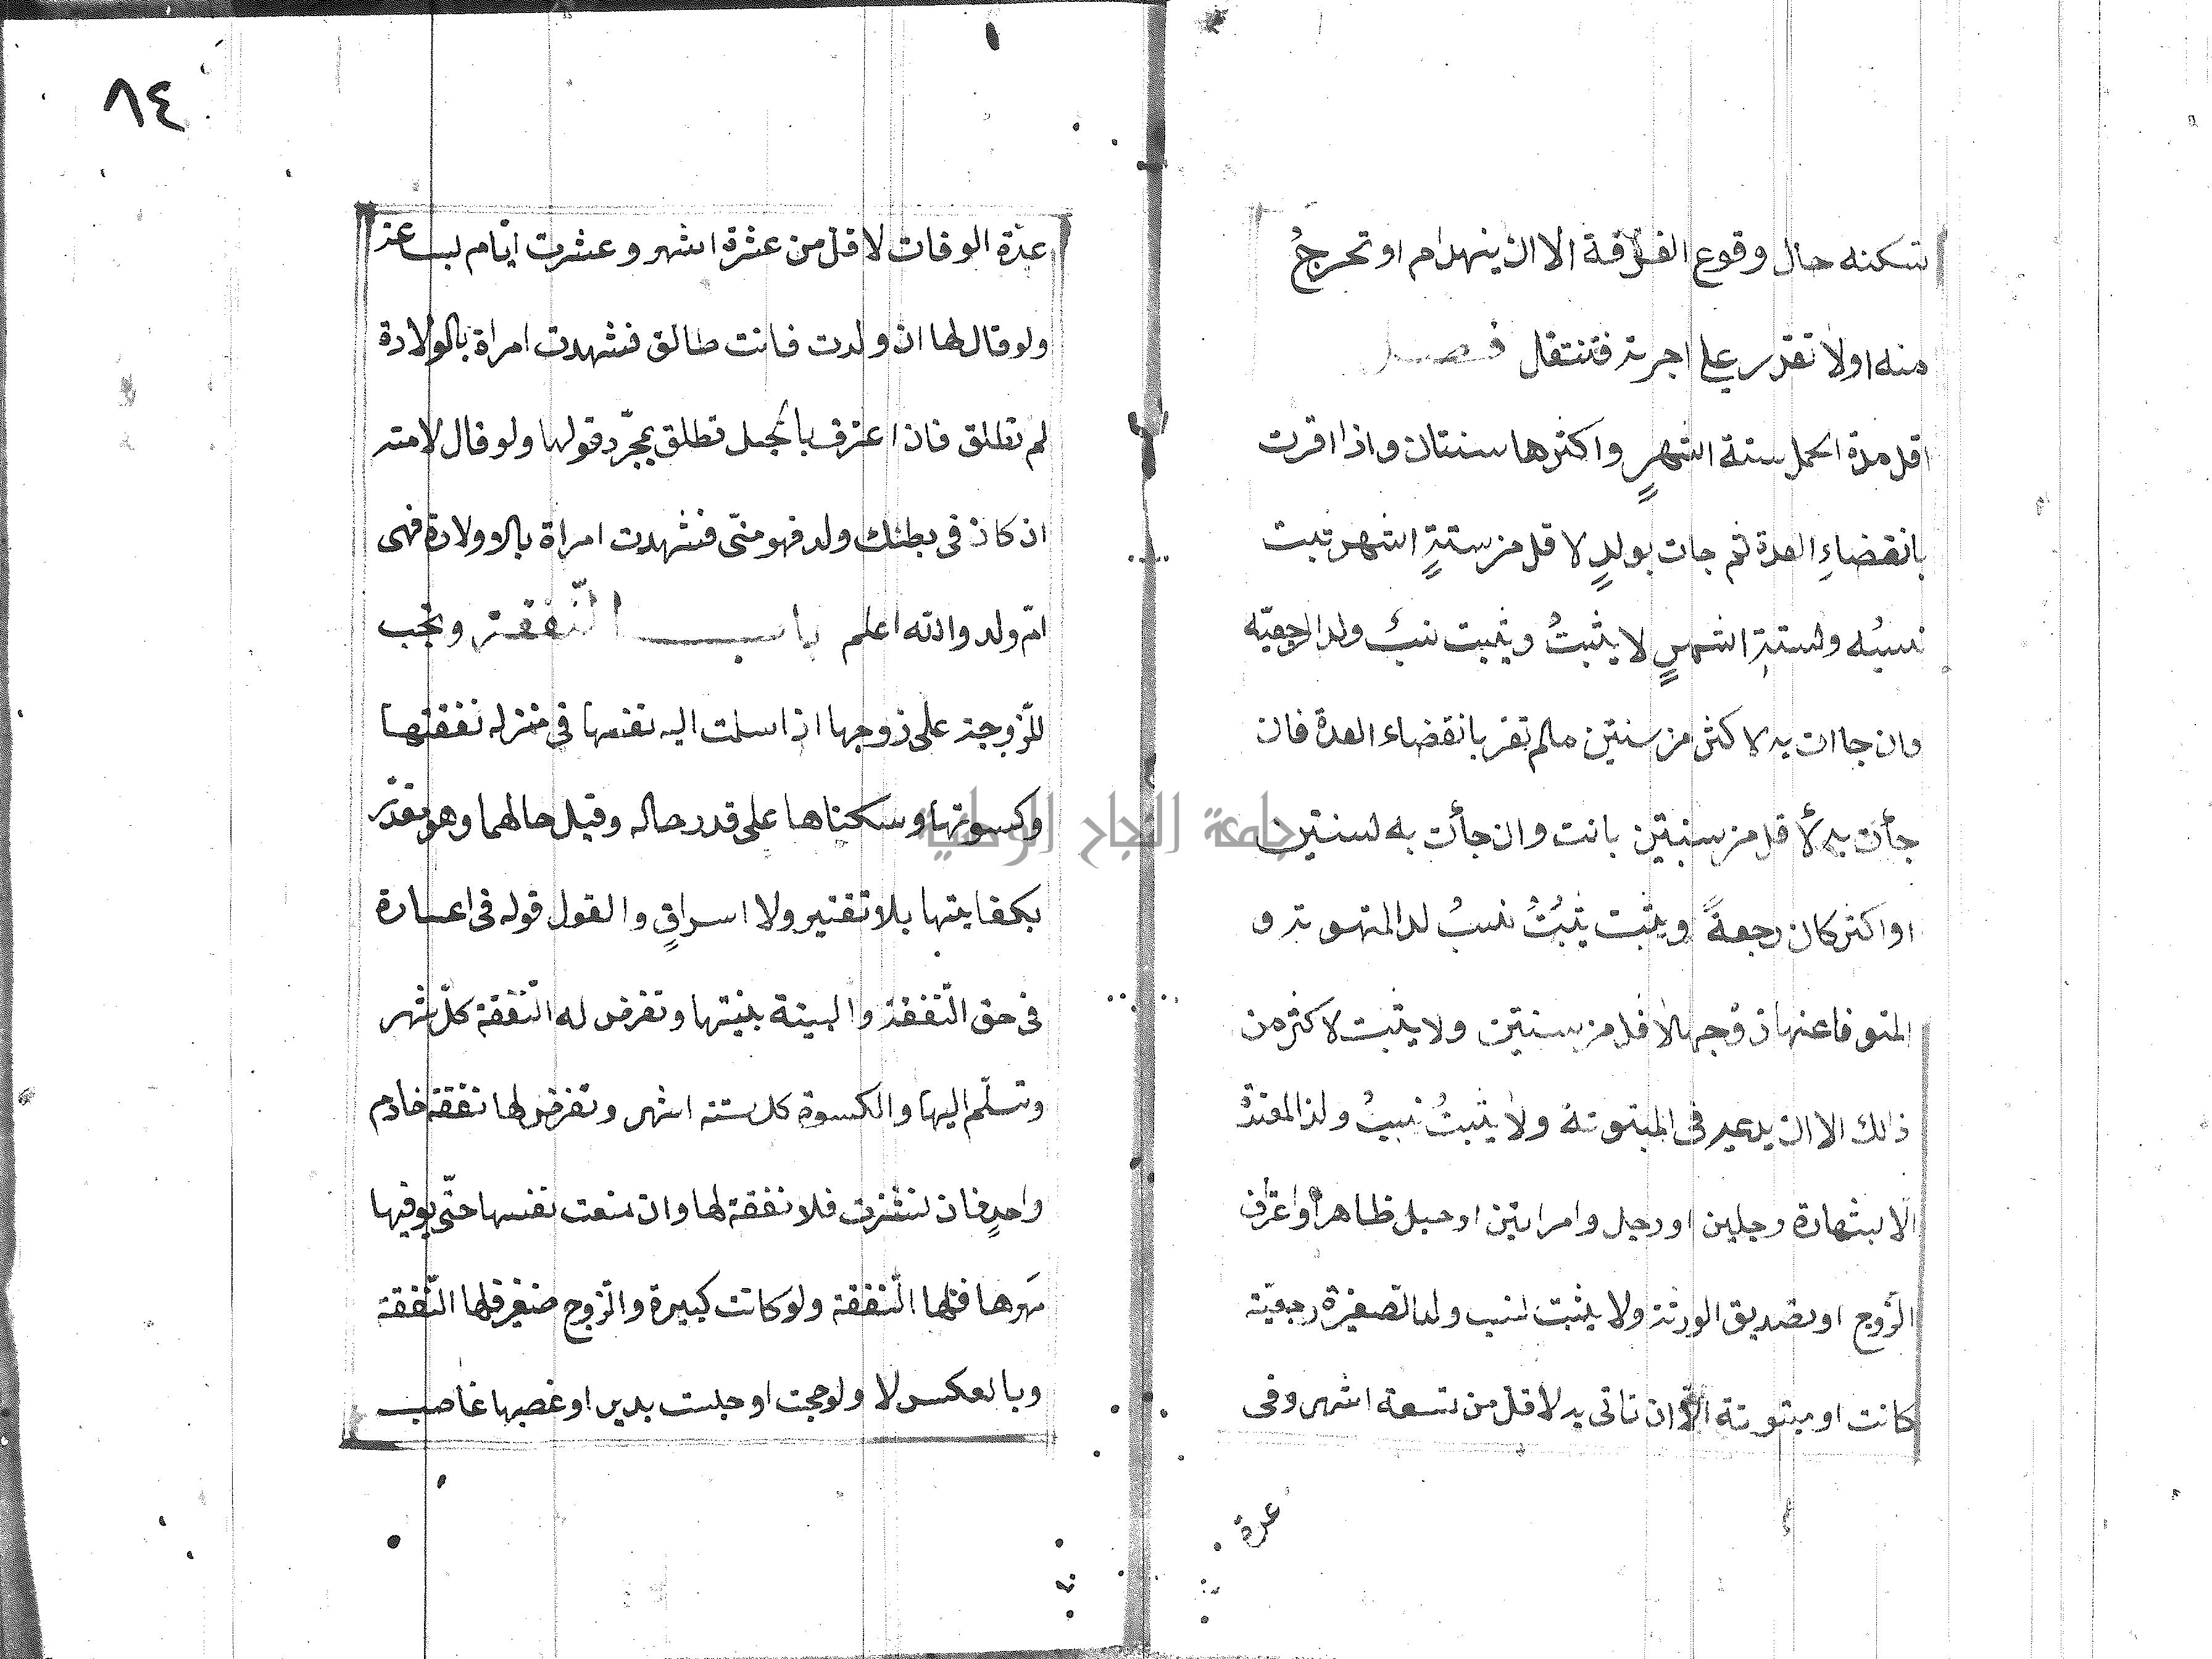 تسكنه حال وقوع الفرقة الا ان ينهدام او تخرجُ
منه اولا تقدر علي اجرته فتنتقل فصل
اقل مدة الحمل ستة اشهرٍ واكثرها سنتان واذا اقرت
بانقضاءِ العدة ثم جات بولدٍ لاقل من ستةٍ اشهر ثبت
نسبُه ولستةِ اشهرٍ لا يثبتُ ويثبت نسبُ ولد الرجعيّه
وان جاات به لاكثر من سنتين مالم تقر بانقضاء العدة فان
جأت به لأقل من سنتين بانت وان جأت به لسنتين
او اكثر كان رجعةً ويثبت يثبُتُ نسبُ لد المتهوته و
المتوفا عنها زوجها لاقل من سنتين ولا يثبت لاكثر من
ذالك الا ان يدعيه فى المبتوتة ولا يثبتُ نسبُ ولد المعتدة
الا بشهادة رجلين او رجل وامراتين او حبل ظاهر او اعتراف
الزّوج او تصديق الورثة ولا يثبت نسب ولد الصغيرة رجعيّة
كانت او مبتوتة الّا ان تاتى به لاقل من تسعة اشهر وفى
عدة
٨٤
عدّة الوفات لاقل من عشرة اشهر وعشرت ايّام
ولو قال لها ان ولدت فانت طالق فشهدت امراة بالولادة
لم تطلق فان اعترف بالحبل تطلق بمجرّد قولها ولو قال لامته
ان كان فى بطنك ولد فهو منّى فشهدت امراة بالاولادة فهى
امّ ولد والله اعلم باب النّفقة وتجب
للزّوجة على زوجها اذا سلمت اليه نفسها فى منزله نفقتها
وكسوتها وسكناها على قدر حاله وقيل حالهما وهو مقدّر
بكفايتها بلا تقتير ولا اسرافٍ والقول قوله فى اعسارة
فى حق النّفقة والبينة بينتها وتفرض له النّفقة كلّ شهر
وتسلّم اليها والكسوة كل ستة اشهر وتفرض لها نفقة خادم
واحدٍ فان نشزت فلا نفقة لها وان منعت نفسها حتّى يوفيها
مَهرها فلها النّفقة ولو كانت كبيرة والزّوج صغير فلها النّفقة
وبالعكس لا ولو حجت او حبست بدين او غصبها غاصب
جامعة النجاح الوطنية